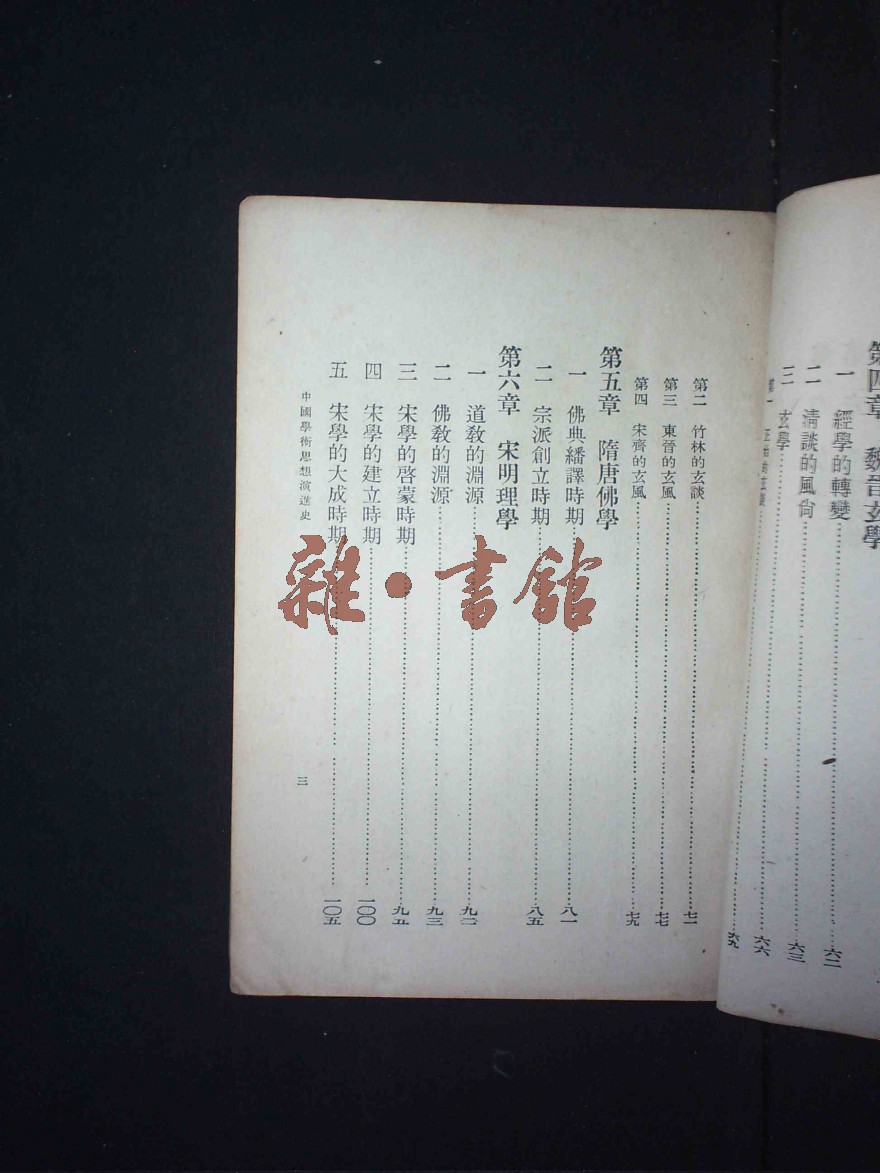 第四章　魏晉玄學
一　經學的轉變……六二
二　清談的風尙……六三
三　玄學……六六
第一　正始的玄談……六九
第二　竹林的玄談……七一
第三　東晉的玄風……七七
第四　宋齊的玄風……七九
第五章　隋唐佛學
一　佛典繙譯時期……八一
二　宗派創立時期……八五
第六章　宋明理學
一　道教的淵源……九二
二　佛教的淵源……九三
三　宋學的啓蒙時期……九五
四　宋學的建立時期……一〇〇
五　宋學的大成時期……一〇五
中國學術思想演進史
三
雜·書館